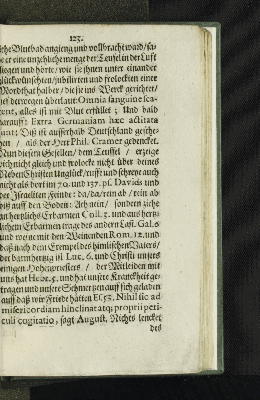 123.
sche Blutbad angieng und vollbracht ward/ sa-
he er eine unzehliche menge der Teufel in der Luft
fliegen und hörte/ wie sie ihnen unter einander
glückwünschten/ jubilirten und frolockten einer
Mordthat halber/ die sie ins Werck gerichtet/
rief derwegen überlaut: Omnia sanguine sca-
tent, alles ist mit Blut erfüllet; Und bald
darauff: Extra Germaniam hæc actitata
sunt; Diß ist ausserhalb Deutschland gesche-
hen/ als der Herr Phil. Cramer gedencket.
Nun diesem Gesellen/ dem Teuffel/ erzeige
dich nicht gleich und frolocke nicht über deines
Neben Christen Unglück/ ruff und schreye auch
nicht als dort im 70. und 137. ps. Davids und
der Israeliten Feinde: da/da/rein ab/rein ab
biß auff den Boden: Ach nein/ sondern ziehe
an hertzlichs Erbarmen Col. 3. und aus hertz-
lichem Erbarmen trage des andern Last. Gal. 6
und weine mit den Weinenden Rom. 12. und
daß nach dem Exempel des himlischen Vaters/
der barmhertzig ist Luc. 6. und Christi unsers
einigen Hohenpriesters/ der Mitleiden mit
uns hat Hebr. 5. und hat unsere Kranckheit ge-
tragen und unsere Schmertzen auff sich geladen
auff daß wir Friede hätten Es. 53. Nihil sic ad
misericordiam hinclinat atq; proprii peri-
culi cogitatio, sagt August. Nichts lencket
des